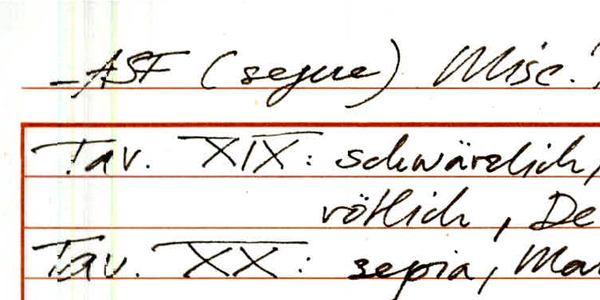 - ASF (segue) Misc.
Tav. XIX: schwärzlich,
rötlich, De
Tav. XX: sepia, Ma